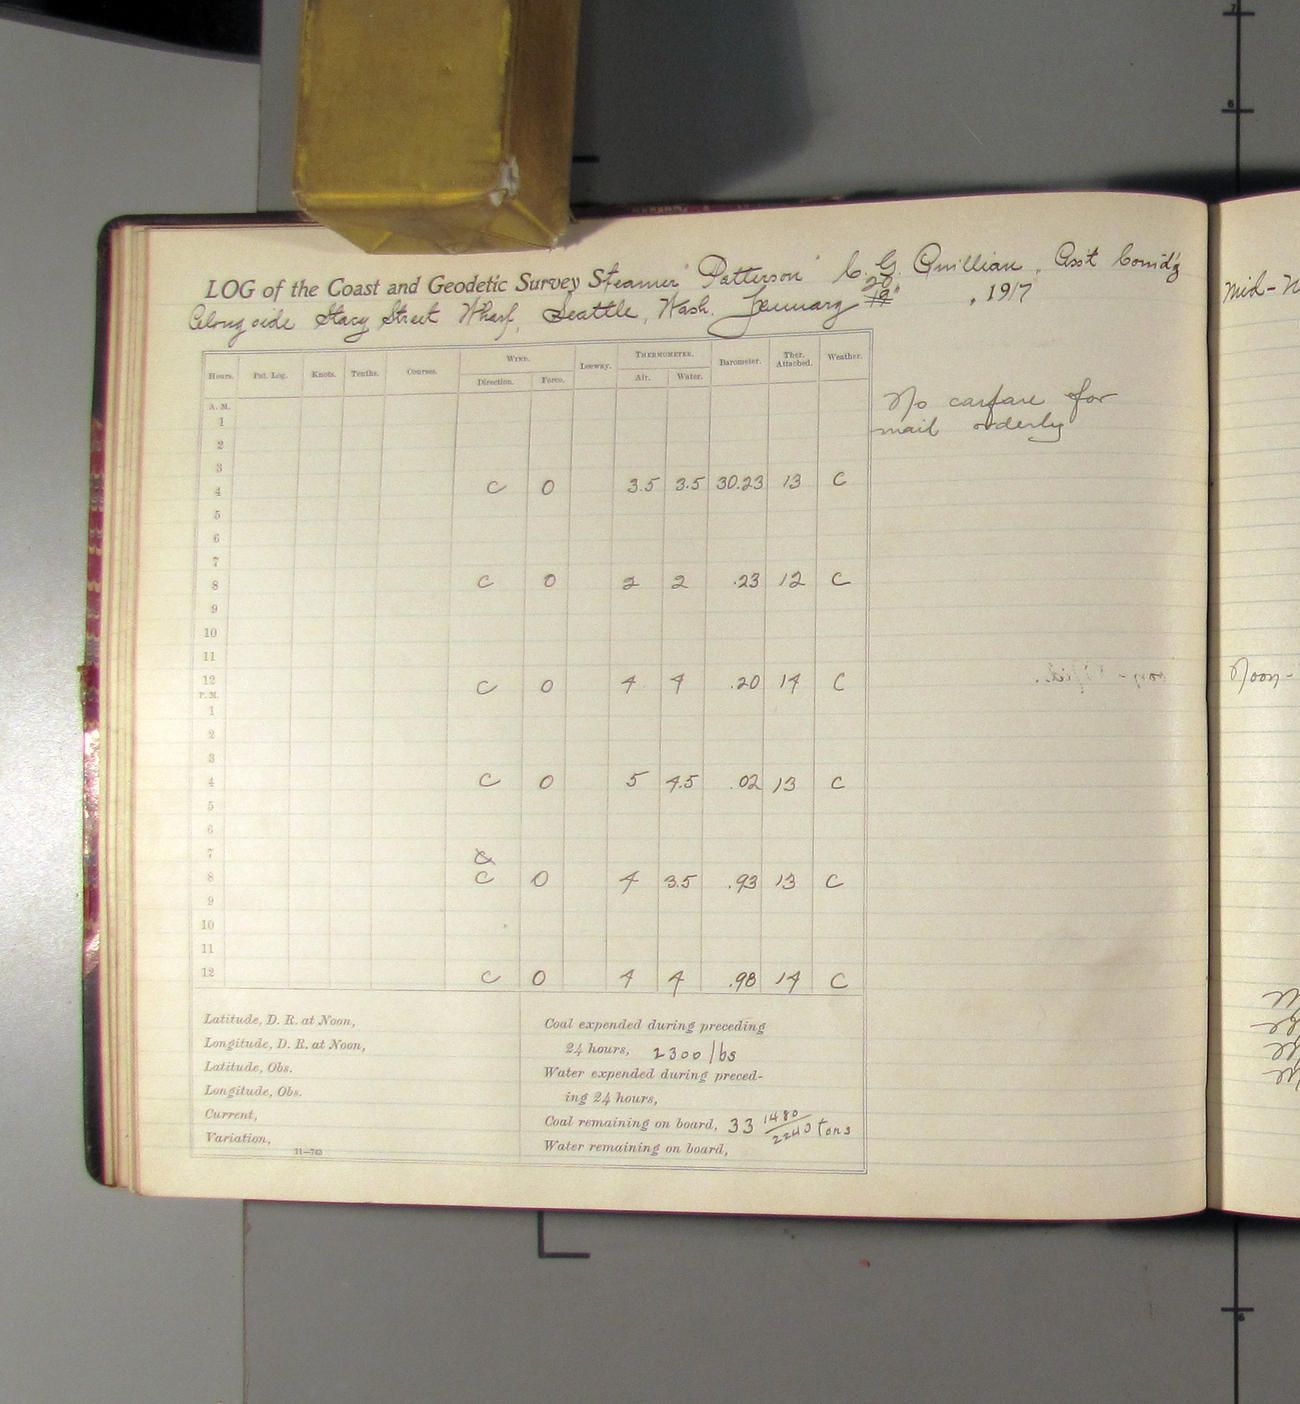 LOG of the Coast and Geodetic Survey Steamer "Patterson" C. G. Quillian, Ass't Comd'g
20
Alongside Stacy Street Wharf, Seattle, Wash. January 19, 1917
Hours. Pat. Log. Knots. Tenths. Courses. WIND. Leeway. THERMOMETER. Barometer. Ther. Attached. Weather.
Direction. Force. Air. Water.
A. M.
1
2
3
4 C 0 3.5 3.5 30.23 13 C
5
6
7
8 C 0 2 2 .23 12 C
9
10
11
12 C 0 4 4 .20 14 C
P. M.
1
2
3
4 C 0 5 4.5 .02 13 C
5
6
7 C
8 C 0 4 3.5 .93 13 C
9
10
11
12 C 0 4 4 .98 14 C
No carfare for
mail orderly
Latitude, D. R. at Noon,
Longitude, D. R. at Noon,
Latitude, Obs.
Longitude, Obs.
Current,
Variation,
11—763
Coal expended during preceding
24 hours, 2300 lbs
Water expended during preced-
ing 24 hours,
Coal remaining on board, 33 1480/2240 tons
Water remaining on board,
Mid-
Noon-